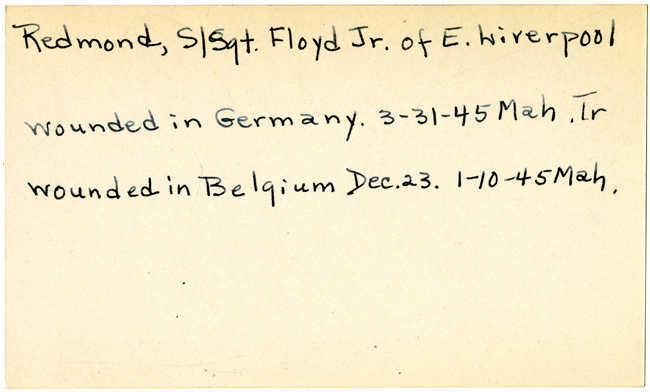 Redmond, S/Sgt. Floyd Jr. of E. Liverpool
wounded in Germany. 3-31-45 Mah. Tr
wounded in Belgium Dec. 23. 1-10-45 Mah.